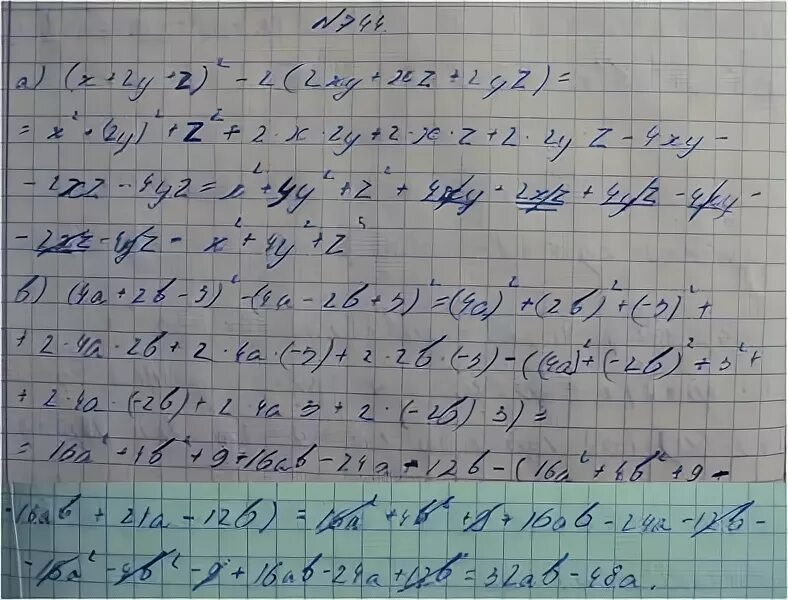 № 744.
а) (x + 2y + z)² - 2(2xy + xz + 2yz) =
= x² + (2y)² + z² + 2·x·2y + 2·x·z + 2·2y·z - 4xy -
- 2xz - 4yz = x² + 4y² + z² + 4xy + 2xz + 4yz - 4xy -
- 2xz - 4yz = x² + 4y² + z²
в) (4a + 2b - 3)² - (4a - 2b + 3)² = (4a)² + (2b)² + (-3)² +
+ 2·4a·2b + 2·4a·(-3) + 2·2b·(-3) - ((4a)² + (-2b)² + 3² +
+ 2·4a·(-2b) + 2·4a·3 + 2·(-2b)·3) =
= 16a² + 4b² + 9 + 16ab - 24a - 12b - (16a² + 4b² + 9 -
- 16ab + 24a - 12b) = 16a² + 4b² + 9 + 16ab - 24a - 12b -
- 16a² - 4b² - 9 + 16ab - 24a + 12b = 32ab - 48a.